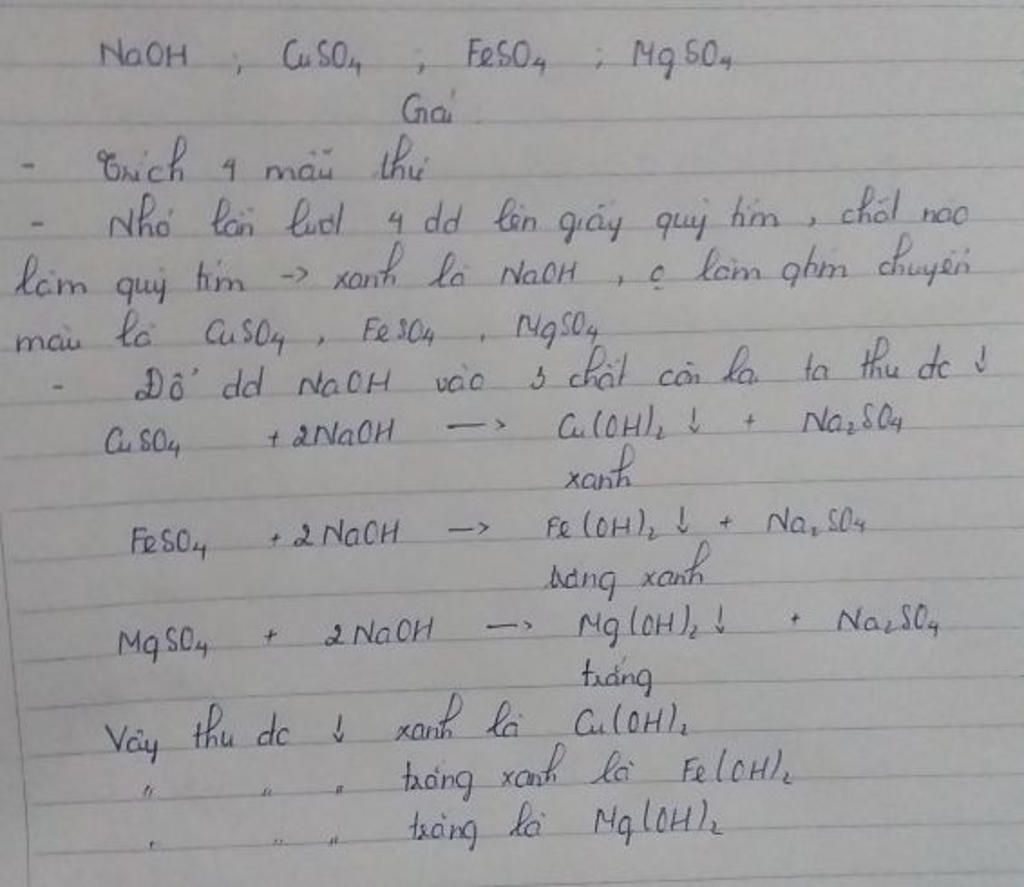 NaOH ; CuSO₄ ; FeSO₄ ; MgSO₄
Giải
- Trích 4 mẫu thử
- Nhỏ lần lượt 4 dd lên giấy quỳ tím, chất nào
làm quỳ tím -> xanh là NaOH, ko làm chuyển
màu là CuSO₄, FeSO₄, MgSO₄
- Đổ dd NaOH vào 3 chất còn lại ta thu dc ↓
CuSO₄ + 2NaOH -> Cu(OH)₂ ↓ + Na₂SO₄
xanh
FeSO₄ + 2NaOH -> Fe(OH)₂ ↓ + Na₂SO₄
trắng xanh
MgSO₄ + 2NaOH -> Mg(OH)₂ ↓ + Na₂SO₄
trắng
Vậy thu dc ↓ xanh là Cu(OH)₂
" " " trắng xanh là Fe(OH)₂
" " " trắng là Mg(OH)₂